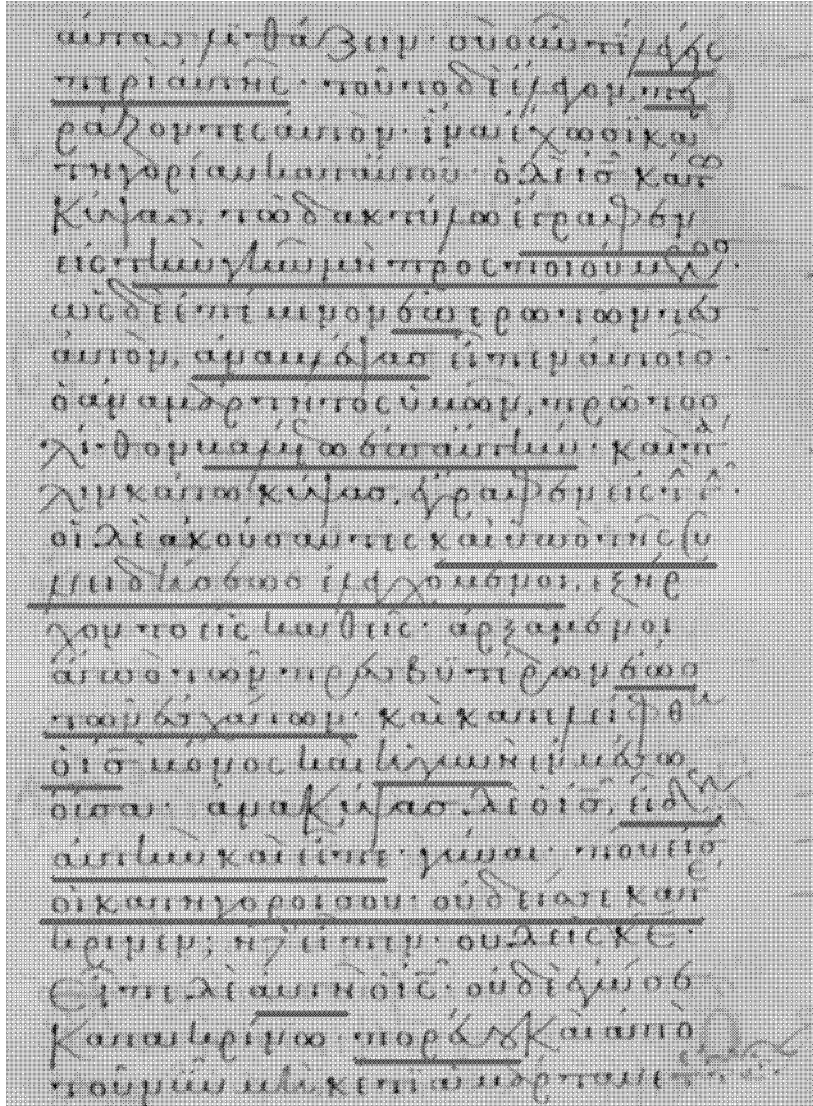 αὐτὰς λιθάζειν· σὺ οὖν τί λέγεις
περὶ αὐτῆς· τοῦτο δὲ ἔλεγον, πει
ράζοντες αὐτόν· ἵνα ἔχωσι κα
τηγορίαν κατ αὐτοῦ· ὁ δὲ ις κάτω
Κύψας, τῶ δακτύλω ἔγραφεν
εἰς τὴν γῆν μὴ προσποιούμενος.
ὡς δὲ ἐπέμενον ἐρωτῶντες
αὐτόν, ἀνακύψας εἶπεν αὐτοῖς·
ὁ ἀναμάρτητος ὑμῶν, πρῶτος
λίθον βαλέτω ἐπ αὐτήν· καὶ πά
λιν κάτω κύψας, ἔγραφεν εἰς τὴν γῆν·
οἱ δὲ ἀκούσαντες καὶ ὑπὸ τῆς συ
νειδήσεως ἐλεγχόμενοι, ἐξήρ
χοντο εἷς καθεῖς· ἀρξάμενοι
ἀπὸ τῶν πρεσβυτέρων ἕως
τῶν ἐσχάτων· καὶ κατελείφθη
ὁ ις μόνος καὶ ἡ γυνὴ ἐν μέσω
οὖσα· ἀνακύψας δὲ ὁ ις, εἶδεν
αὐτὴν καὶ εἶπε· γύναι· ποῦ εἰσ
οἱ κατήγοροί σου· οὐδείς σε κατέ
κρινεν; ἡ δὲ εἶπεν· οὐδεὶς κε·
Εἶπε δὲ αὐτῆ ὁ ις· οὐδὲ ἐγώ σε
Κατακρίνω πορεύου Καὶ ἀπὸ
τοῦ νῦν μηκέτι ἁμάρτανε